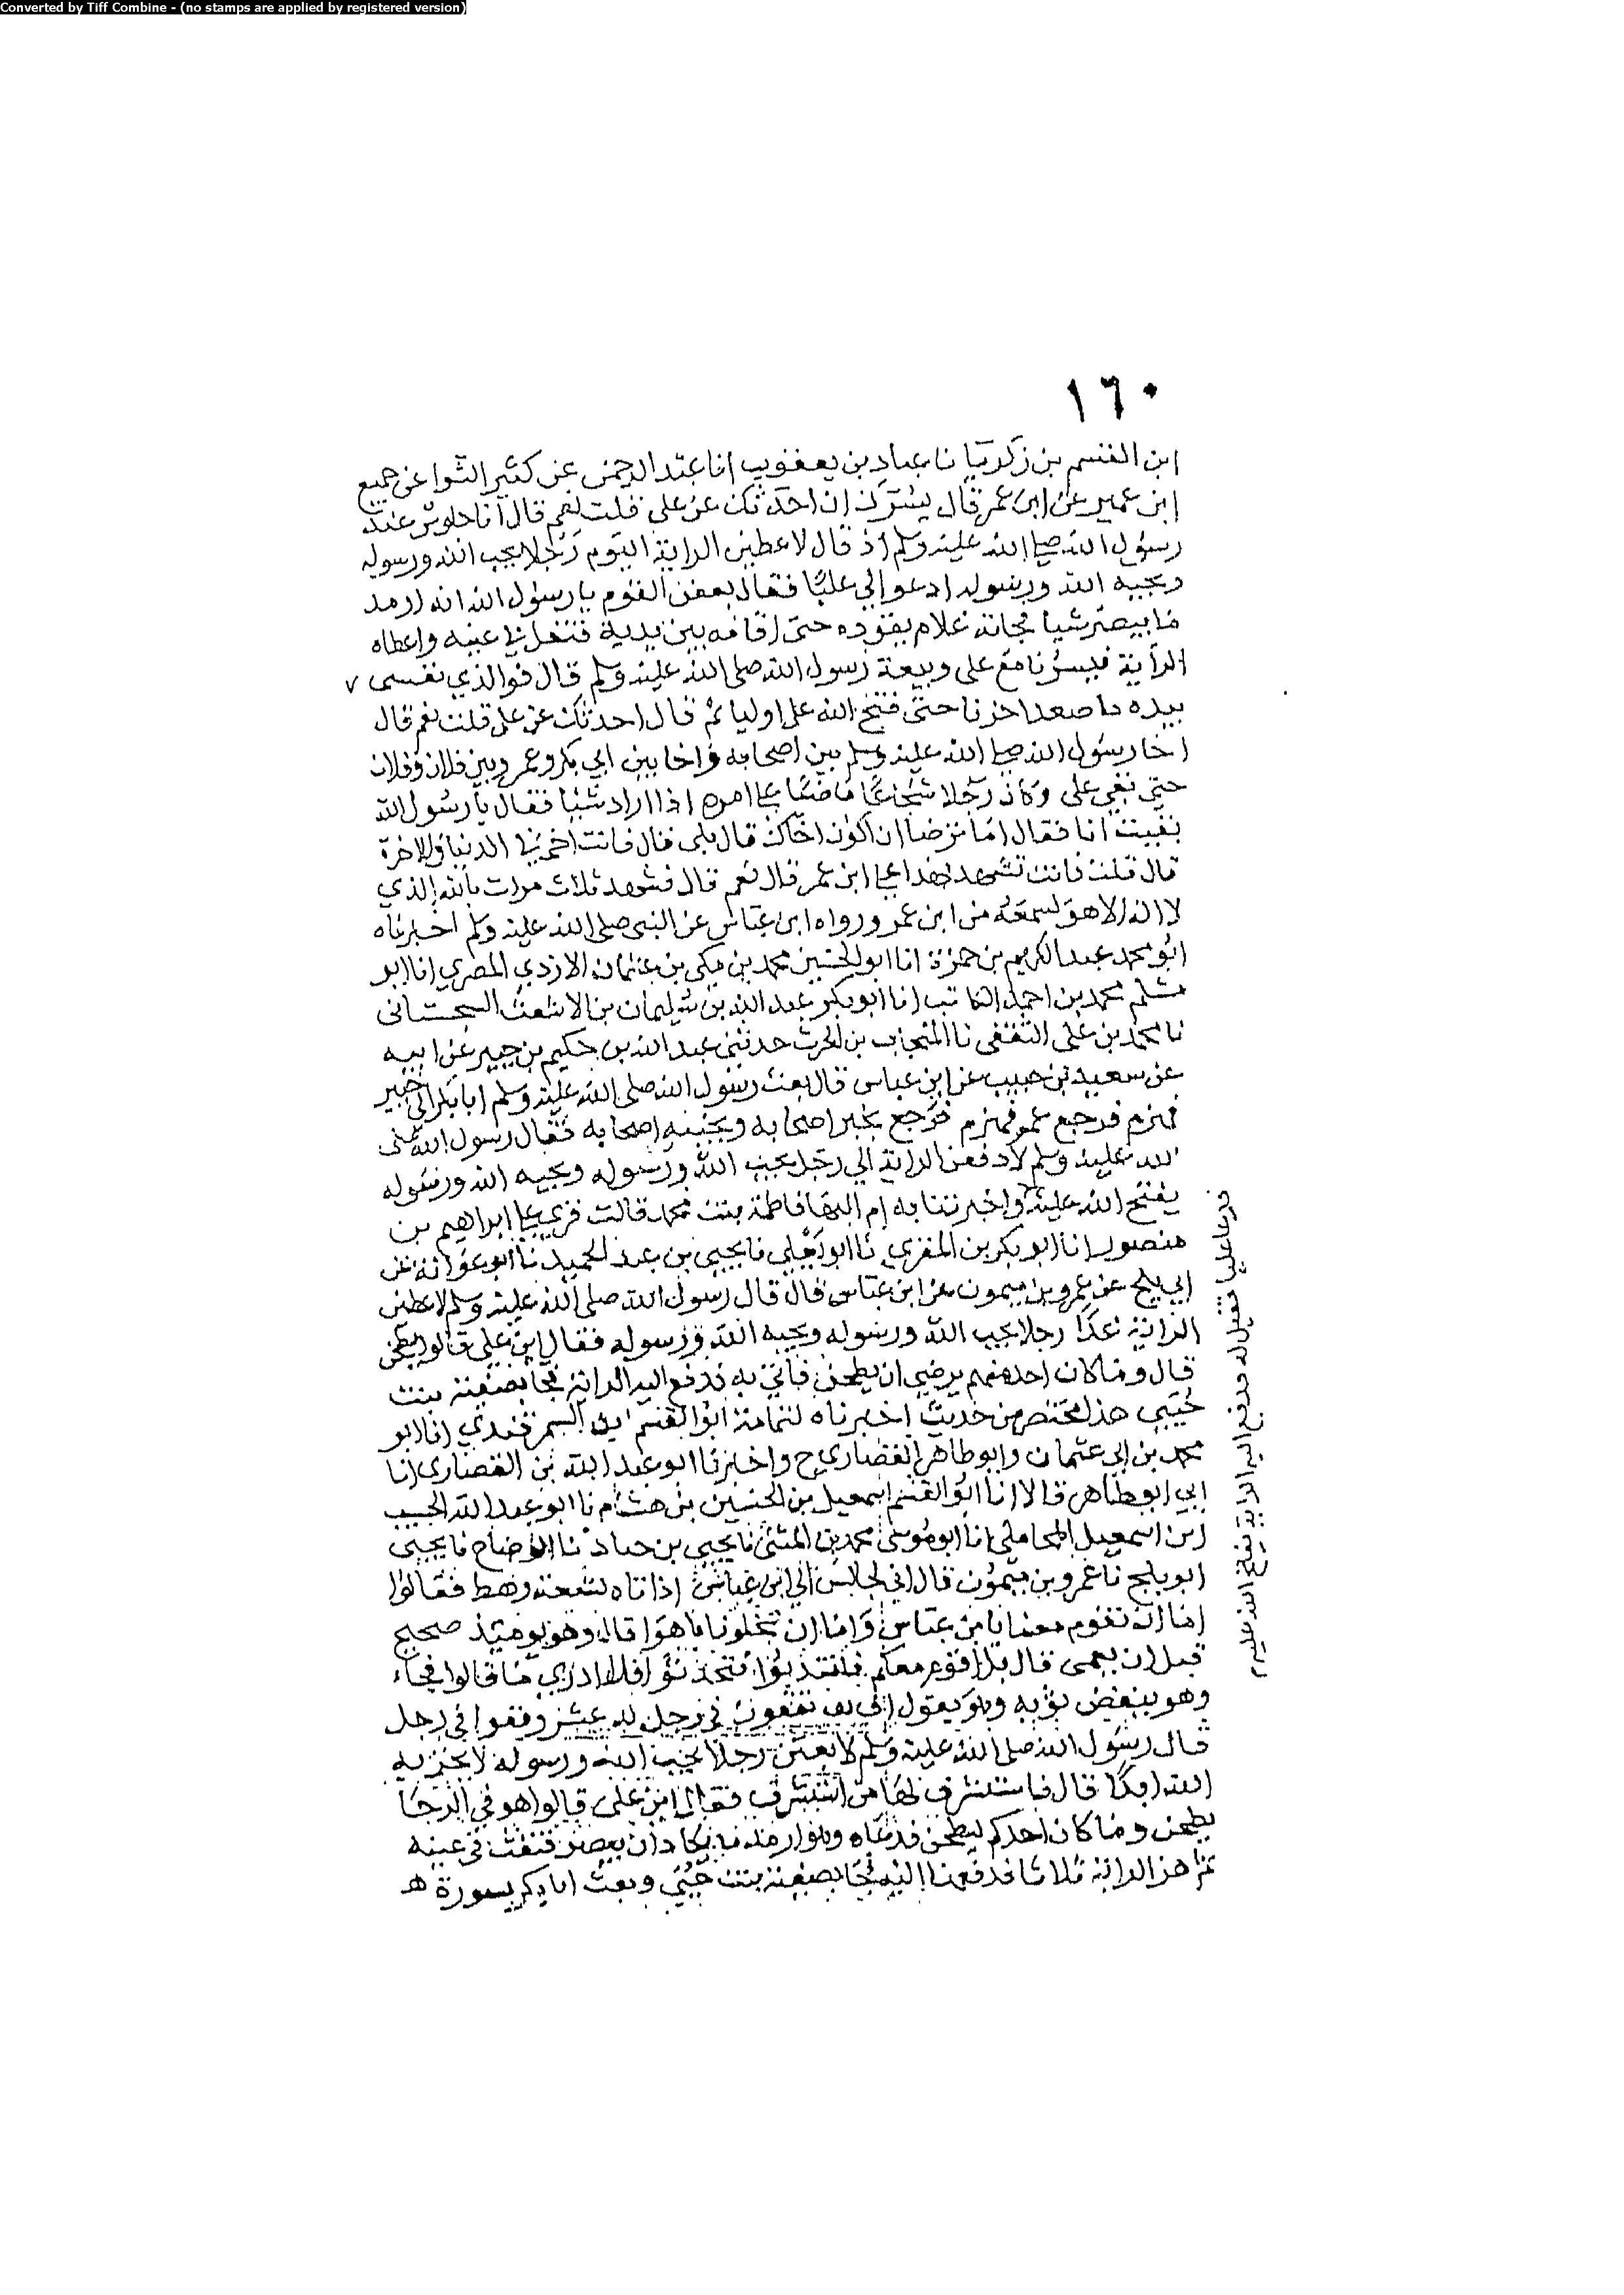 Converted by Tiff Combine - (no stamps are applied by registered version)
١٦٠
ابن القسم بن زكريا نا عباد بن يعقوب انا عبد الرحمن عن كثير النوا عن جميع
ابن عمير عن ابن عمر قال يسرك ان احدثك عن علي قلت نعم قال انا جلوس عند
رسول الله صلى الله عليه وسلم اذ قال لاعطين الراية اليوم رجلا يحب الله ورسوله
ويحبه الله ورسوله ادعو الي عليا فقال بعض القوم يا رسول الله انه ارمد
ما يبصر شيا فجاته غلام يقوده حتى اقامه بين يديه فتفل في عينيه واعطاه
الراية فيسرنا مع علي وبيعة رسول الله صلى الله عليه وسلم قال فوالذي نفسي ٧
بيده ما صعد اخرنا حتى فتح الله على اوليا ثم قال احدثك عن علي قلت نعم قال
اخا رسول الله صلى الله عليه وسلم بين اصحابه واخا بين ابي بكر وعمر وبين فلان وفلان
حتى بقي علي وكان رجلا شجاعا ماضيا على امره اذا اراد شيئا فقال يا رسول الله
بقيت انا فقال اما ترضا ان اكون اخاك قال بلى قال فانت اخي في الدنيا والاخرة
قال قلت فانت تشهد بهذا على ابن عمر قال نعم قال فشهد ثلاث مرات بالله الذي
لا اله الا هو لسمعه من ابن عمر ورواه ابن عباس عن النبي صلى الله عليه وسلم اخبرناه
ابو محمد عبد الكريم بن حمزة انا ابو الحسين محمد بن مكي بن عثمان الازدي المصري انا ابو
مسلم محمد بن احمد الكاتب انا ابو بكر عبد الله بن سليمان بن الاشعث السجستاني
نا محمد بن علي الثقفي نا المنجاب بن الحرث حدثني عبد الله بن حكيم بن جبير عن ابيه
عن سعيد بن حبيب عن ابن عباس قال بعث رسول الله صلى الله عليه وسلم ابا بكر الى خيبر
فهزم فرجع عمر فهزم فرجع يجبن اصحابه ويجبنه اصحابه فقال رسول الله صلى
الله عليه وسلم لادفعن الراية الي رجل يحب الله ورسوله ويحبه الله ورسوله
يفتح الله عليه واخبرتنا به ام البها فاطمة بنت محمد قالت قري على ابراهيم بن
منصور انا ابو بكر بن المقري نا ابو يعلي نا يحيى بن عبد الحميد نا ابو عوانة عن
ابي بلج عن عمرو بن ميمون عن ابن عباس قال قال رسول الله صلى الله عليه وسلم لاعطين
الراية غدا رجلا يحب الله ورسوله ويحبه الله ورسوله فقال اين علي قالوا يطحن
قال وما كان احد منهم يرضي ان يطحن فاتي به فدفع اليه الراية فجا بصفية بنت
حيي هذا مختصر من حديث اخبرناه بتمامه ابو القسم ابن السمرقندي انا ابو
محمد بن ابي عثمان وابو طاهر القصاري ح واخبرنا ابو عبد الله بن القصاري انا
ابي ابو طاهر قالا انا ابو القسم اسمعيل بن الحسين بن هشام نا ابو عبد الله الحسين
ابن اسمعيل المحاملي نا ابو موسى محمد بن المثنى نا يحيي بن حماد نا الوضاح نا يحيى
ابو بلج نا عمرو بن ميمون قال اني لجالس الي ابن عباس اذ اتاه تسعة رهط فقالوا
اما ان تقوم معنا يا بن عباس واما ان تخلونا يا هوا قال وهو يومئذ صحيح
قبل ان يعمى قال بل اقوم معكم فانتدبوا فتحدثوا فلا ادري ما قالوا فجاء
وهو ينفض ثوبه وهو يقول اف تف يقعون في رجل له عشر وقعوا في رجل
قال رسول الله صلى الله عليه وسلم لابعثن رجلا يحب الله ورسوله لا يخزيه
الله ابدا قال فاستشرف لها من استشرف فقال اين علي قالوا هو في الرحا
يطحن وما كان احدكم ليطحن فدعاه وهو ارمد ما يكاد ان يبصر فنفث في عينيه
ثم هز الراية ثلاثا فدفعها اليه فجا بصفية بنت حيي وبعث ابا بكر بسورة ه
فدعا عليا فتفل له ودفع اليه الراية يفتح الله عليه م